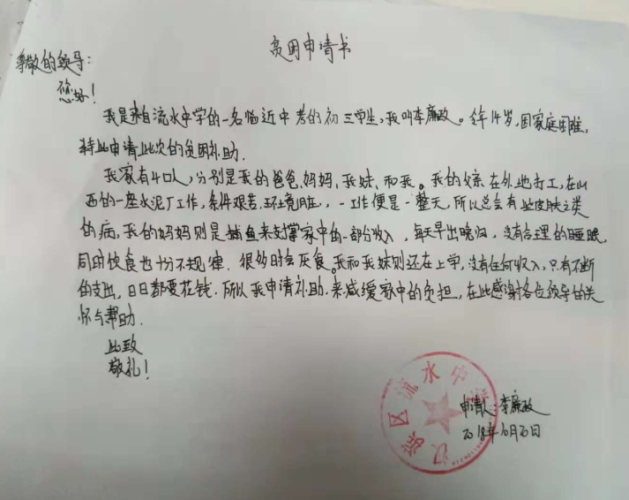 贫困申请书
尊敬的领导:
您好!
我是来自流水中学的一名临近中考的初三学生,我叫李廉政。今年14岁,因家庭困难,
特此申请此次的贫困补助.
我家有4口人,分别是我的爸爸.妈妈,我妹、和我。我的父亲在外地打工,在山
西的一座水泥厂工作,条件艰苦,环境脏,一工作便是一整天,所以总会有些皮肤之类
的病,我的妈妈则是捕鱼来支撑家中的一部分收入,每天早出晚归,没有合理的睡眠
同时饮食也十份不规律.很多时会厌食。我和我妹则还在上学,没有任何收入,只有不断
的支出,日日都要花钱.所以我申请补助.来减缓家中的负担,在此感谢各位领导的关
怀与帮助.
此致
敬礼!
申请人:李廉政
2018年10月20日
汉滨区流水中学